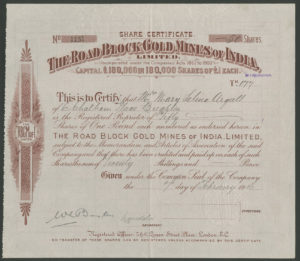 SHARE CERTIFICATE
No 1131 50 Shares
THE ROAD BLOCK GOLD MINES OF INDIA,
LIMITED.
INCORPORATED UNDER THE COMPANIES ACTS, 1862 TO 1900
CAPITAL £180,000 IN 180,000 SHARES OF £1 EACH.
This is to Certify that Mrs Mary Selina
of Chatham Place Brighton
is the Registered Proprietor of Fifty
Shares of One Pound each numbered as endorsed hereon in
THE ROAD BLOCK GOLD MINES OF INDIA, LIMITED,
subject to the Memorandum and Articles of Association of the said
Company and that there has been credited and paid up on each of such
Shares the sum of Twenty Shillings
Given under the Common Seal of the Company
the day of February
Registered Office: Queen Street Place, London, E.C.
NO TRANSFER OF THESE SHARES CAN BE REGISTERED UNLESS ACCOMPANIED BY THIS CERTIFICATE